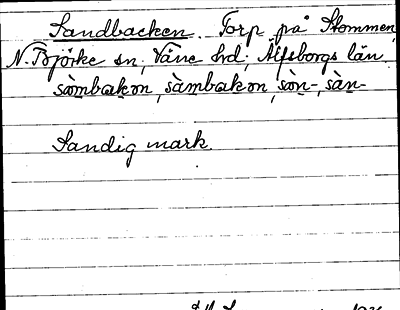 Sandbacken. Torp på Stommen,
N. Björke sn, Väne hd, Älfsborgs län.
sàmbakən, sàmbakən, sàn-, sàn-
Sandig mark.